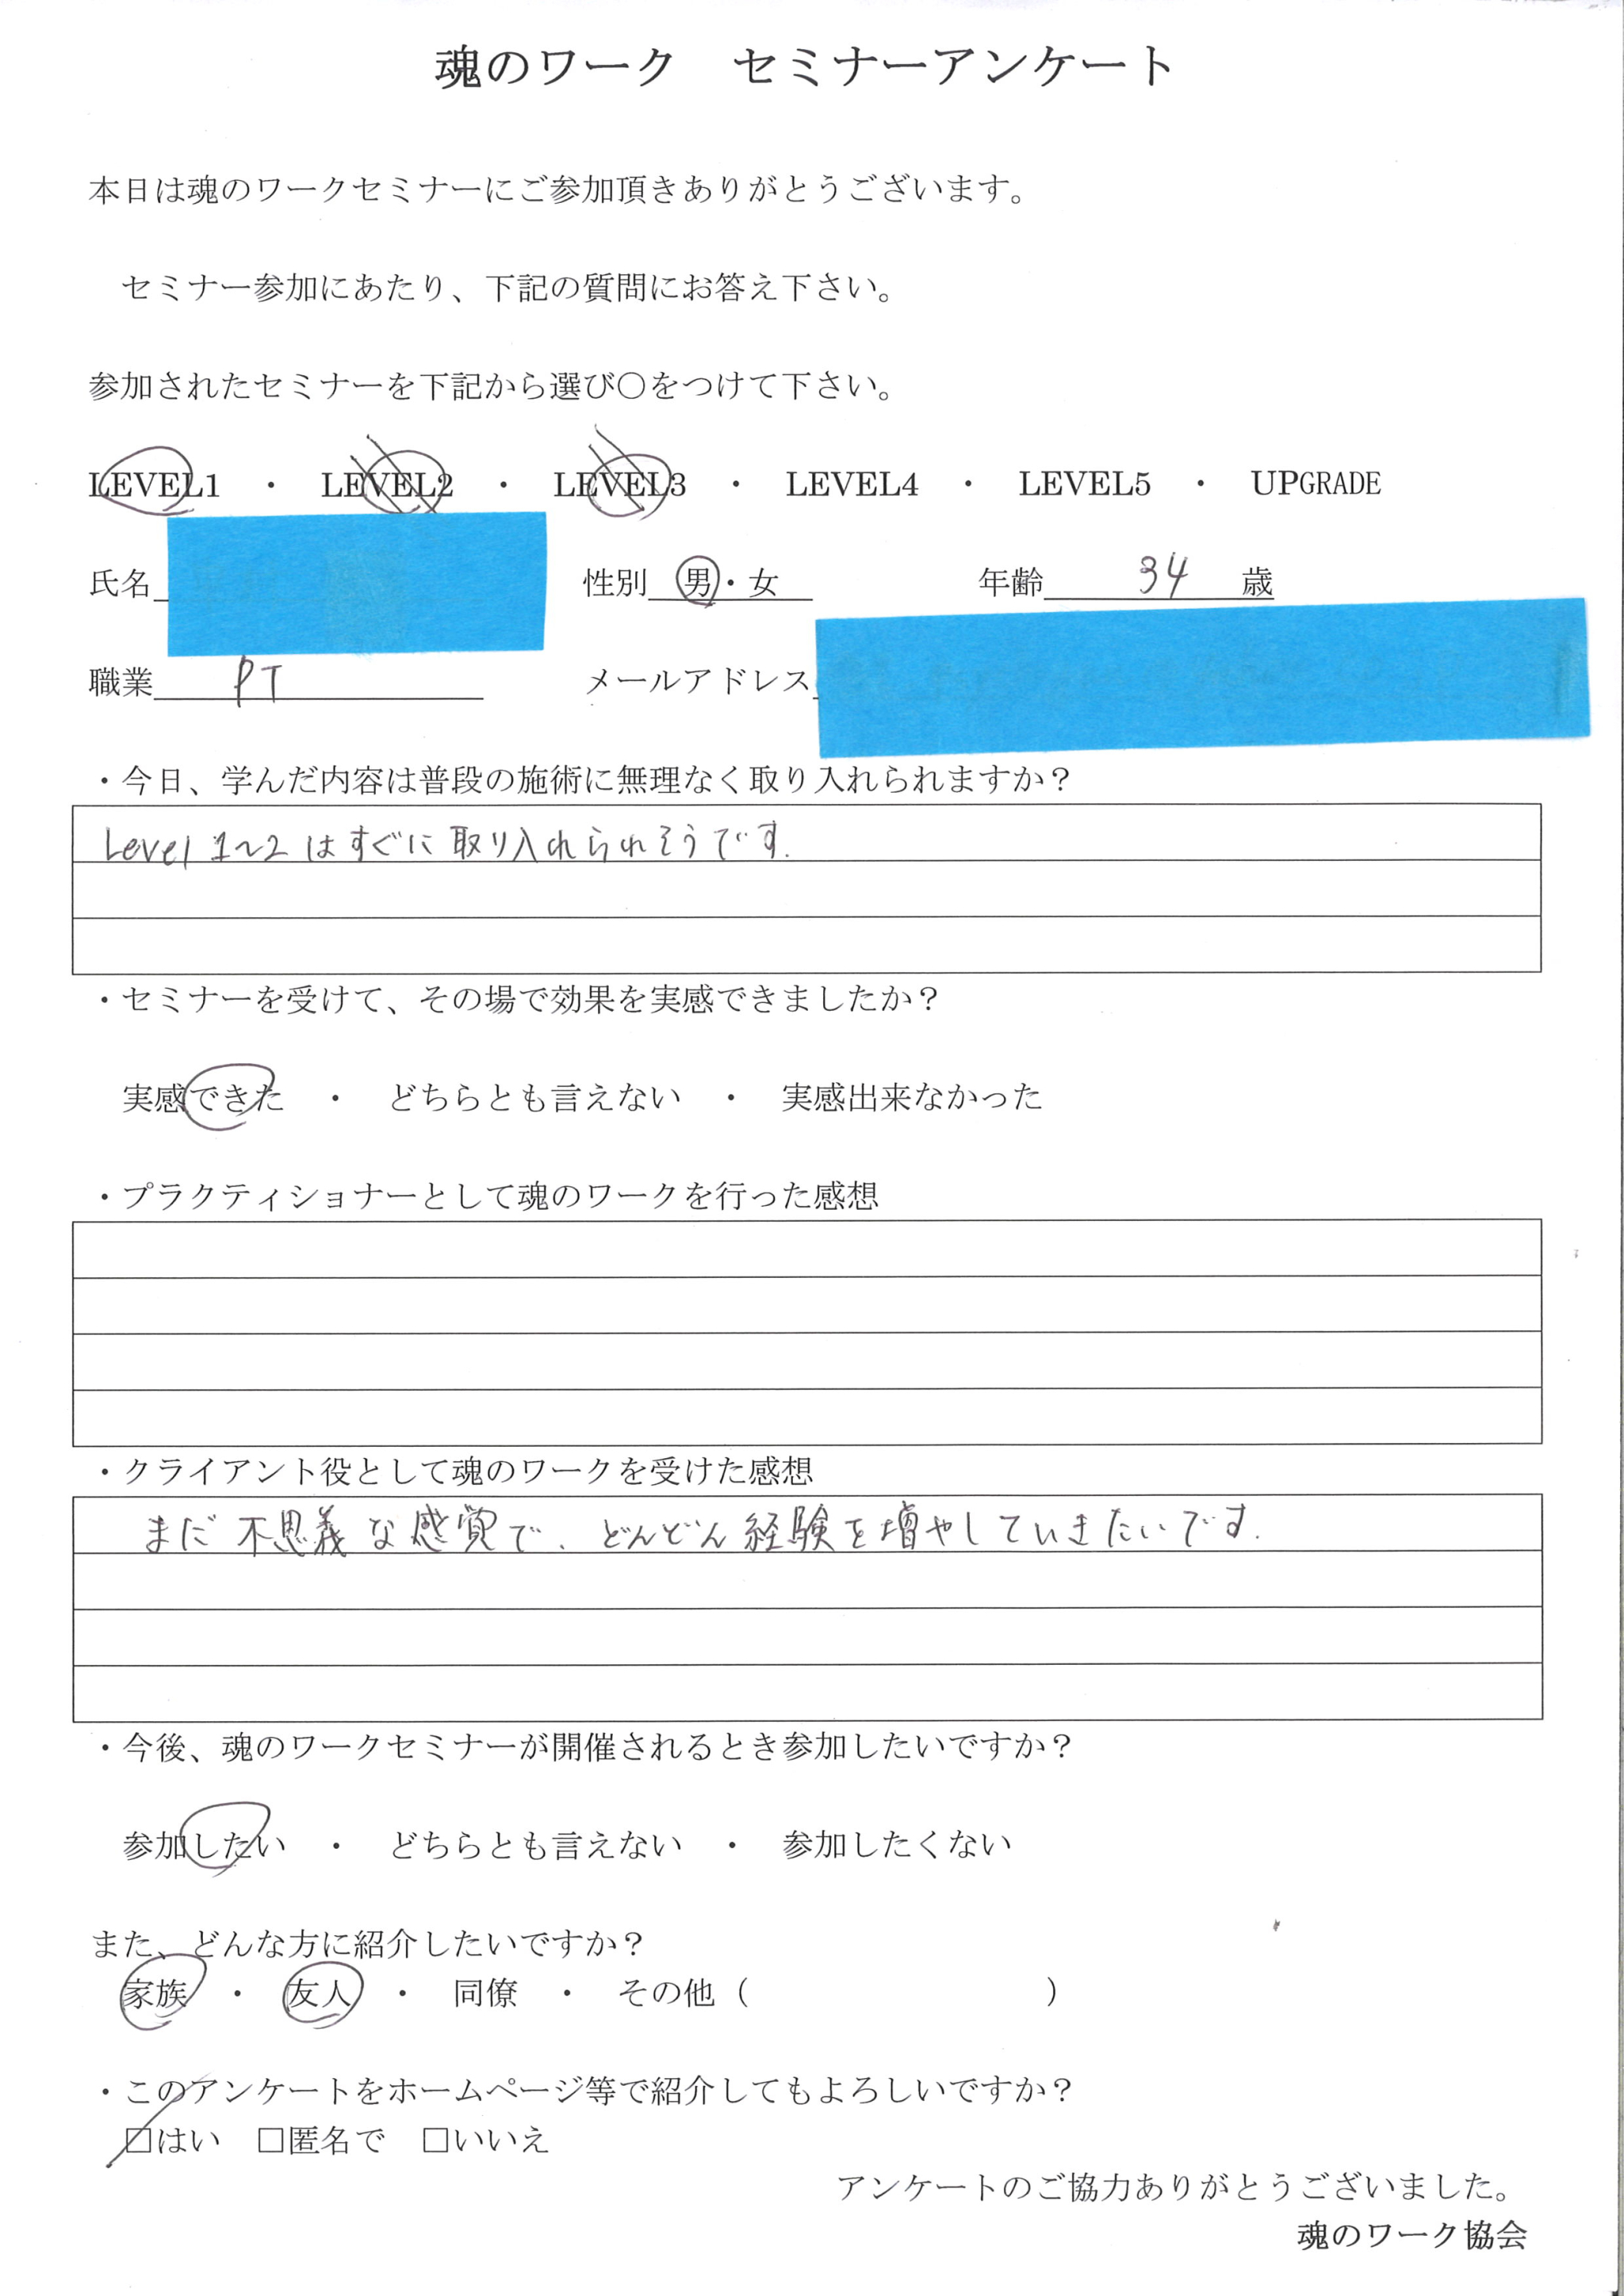 魂のワーク　セミナーアンケート
本日は魂のワークセミナーにご参加頂きありがとうございます。
セミナー参加にあたり、下記の質問にお答え下さい。
参加されたセミナーを下記から選び〇をつけて下さい。
LEVEL1 ・ LEVEL2 ・ LEVEL3 ・ LEVEL4 ・ LEVEL5 ・ UPGRADE
氏名 性別 男・女 年齢 34 歳
職業 PT メールアドレス
・今日、学んだ内容は普段の施術に無理なく取り入れられますか？
Level 1～2 はすぐに取り入れられそうです.
・セミナーを受けて、その場で効果を実感できましたか？
実感できた ・ どちらとも言えない ・ 実感出来なかった
・プラクティショナーとして魂のワークを行った感想
・クライアント役として魂のワークを受けた感想
まだ不思義な感覚で、どんどん経験を増やしていきたいです.
・今後、魂のワークセミナーが開催されるとき参加したいですか？
参加したい ・ どちらとも言えない ・ 参加したくない
また、どんな方に紹介したいですか？
家族 ・ 友人 ・ 同僚 ・ その他（ ）
・このアンケートをホームページ等で紹介してもよろしいですか？
□はい □匿名で □いいえ
アンケートのご協力ありがとうございました。
魂のワーク協会